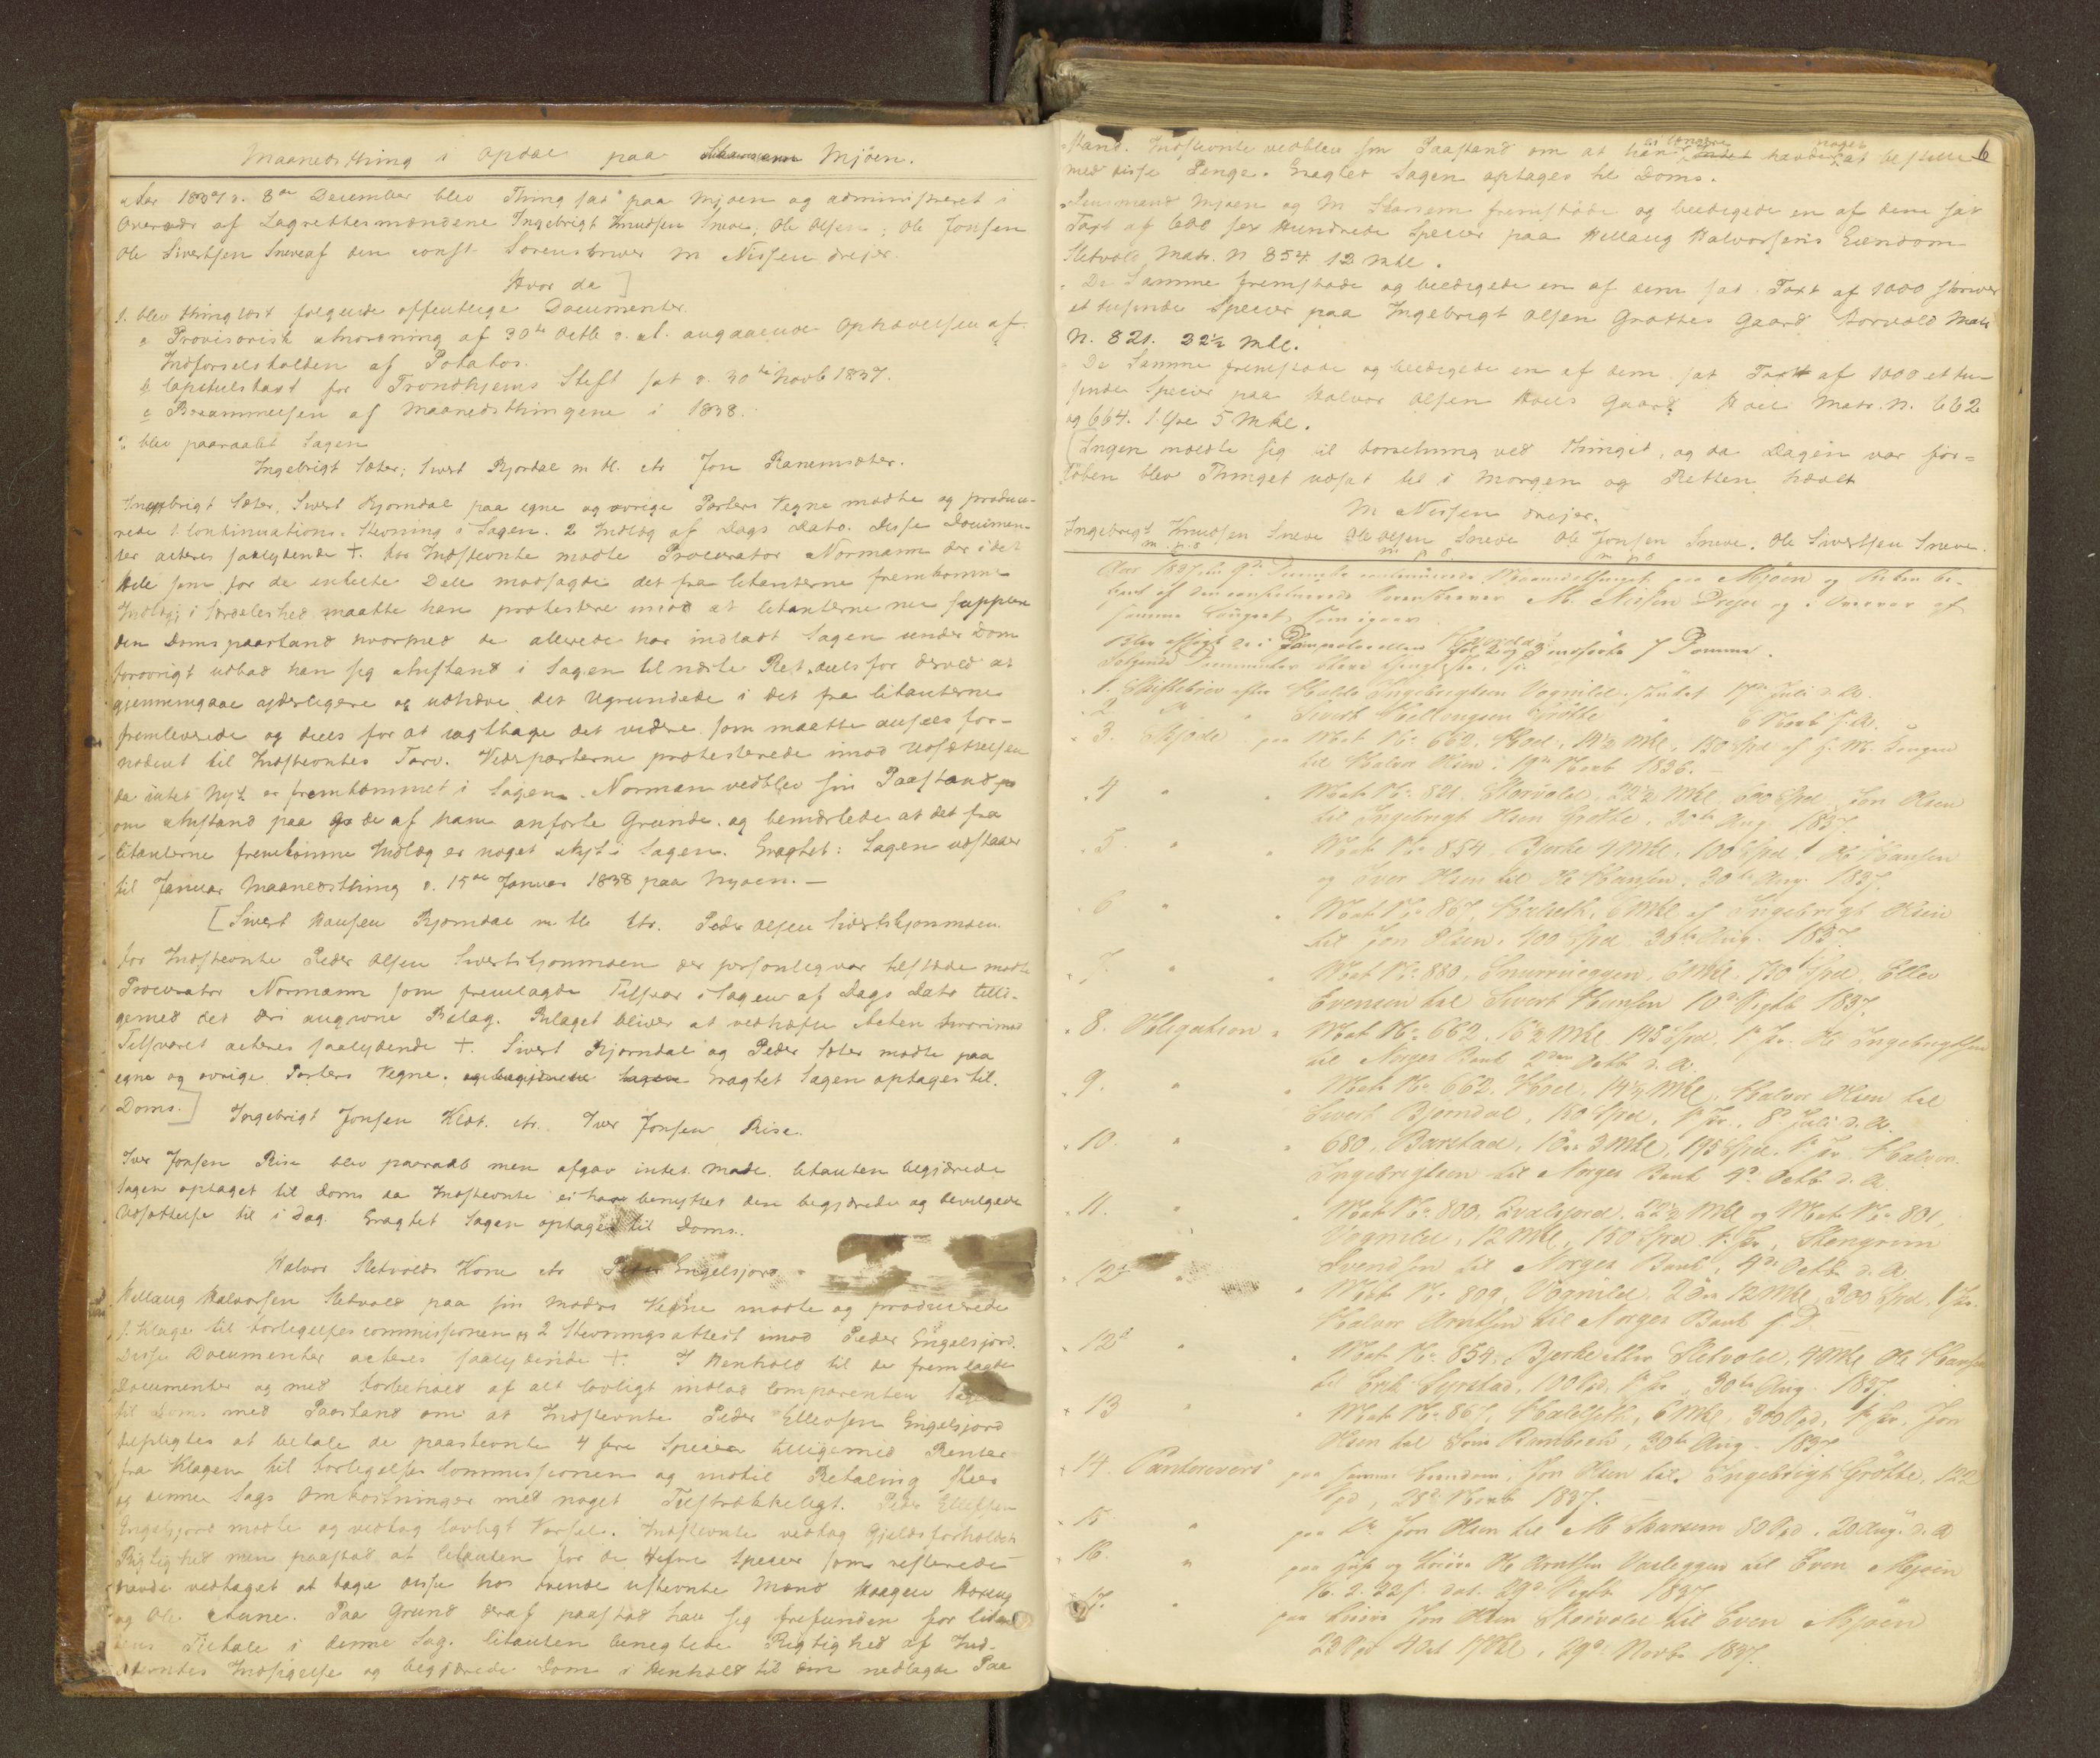 Maanedsthing i Opdal paa Mjöen.
Aar 1837 d. 8de December blev Thing sat paa Mjöen og administreret i
Overvær af Lagrettesmændene Ingebrigt Knudsen Sneve, Ole Olsen, Ole Jonsen
Ole Sivertsen Sneve af den const Sorenskriver M Nissen Drejer.
Hvor da
1. blev thinglæst følgende offentlige Documenter.
a Provisorisk Anordning af 30te Octb d. A. angaaende Ophævelsen af
Indførselstolden af Potatos.
b Capitulstaxt for Trondhjems Stift sat d. 30te Novb 1837.
c Berammelsen af Maanedsthingene i 1838.
2 blev paaraabt Sagen
Ingebrigt Sæter, Sivert Bjørndal m fl. ctr Jon Ranemsæter.
Ingebrigt Sæter, Sivert Bjørndal paa egne og øvrige Parters Vegne mødte og produce-
rede 1. Continuations-Stevning i Sagen. 2 Indlæg af Dags Dato. Disse Documen-
ter acteres saalydende +. For Indstevnte mødte Procurator Normann der i det
Hele som for de enkelte Dele modsagde det fra Citanterne fremkomne
Indlæg; i Særdeleshed maatte han protestere imod at Citanterne nu supplere
den Doms paastand hvormed de allerede har indladt Sagen under Dom
forøvrigt udbad han sig Anstand i Sagen til næste Ret, deels for derved at
gjennemgaae yderligere og udhæve det Ugrundede i det fra Citanterne
fremleverede og deels for at iagttage det videre som maatte ansees for-
nødent til Indstevntes Tarv. Vederparterne protesterede imod Udsættelsen
da intet Nyt er fremkommet i Sagen. Norman vedblev sin Paastand
om Anstand paa de af ham anførte Grunde og bemærkede at det fra
Citanterne fremkomne Indlæg er noget Nyt i Sagen. Eragtet: Sagen udstaaer
til Januar Maanedsthing d. 15de Januar 1838 paa Mjöen. —
[Sivert Hansen Bjørndal m fl. Ctr. Peder Olsen Sivertshjonmoen.
For Indstevnte Peder Olsen Sivertshjonmoen der personlig var tilstæde mødte
Procurator Normann som fremlagde Tilsvar i Sagen af Dags Dato tilli-
gemed det deri angivne Bilag. Bilaget bliver at vedhæfte Acten hvorimod
Tilsvaret acteres saalydende +. Sivert Bjørndal og Peder Sæter mødte paa
egne og øvrige Parters Vegne. Eragtet Sagen optages til
Doms.]
Ingebrigt Jonsen Klet. ctr. Iver Jonsen Rise.
Iver Jonsen Rise blev paaraabt men afgav intet Møde. Citanten begjærede
Sagen optaget til Doms da Indstevnte ei har benyttet den begjærede og bevilgede
Udsættelse til i Dag. Eragtet Sagen optages til Doms.
Halvor Sletvolds Kone ctr Peder Engelsjord
Hellaug Halvorsen Sletvold paa sin Moders Vegne mødte og producerede
1. Klage til Forligelsescommissionen og 2 Stevningsattest imod Peder Engelsjord.
Disse Documenter acteres saalydende +. I Henhold til de fremlagte
Documenter og med Forbehold af alt lovligt indlod Comparenten Sagen
til Doms med Paastand om at Indstevnte Peder Ellevsen Engelsjord
tilpligtes at betale de paastevnte 4 fire Specier tilligemed Renter
fra Klagen til Forligelses Commissionen og indtil Betaling skeer
og denne Sags Omkostninger med noget Tilstrækkeligt. Peder Ellefsen
Engelsjord mødte og vedtog lovligt Varsel. Indstevnte vedtog Gjældsforholdets
Rigtighed men paastod at Citanten for de Specier som resterede
havde vedtaget at tage disse hos trende Mænd Haagen
og Ole Aune. Paa Grund deraf paastod han sig frifunden for Citan
tens Tiltale i denne Sag. Citanten benegtede Rigtighed af Ind-
stevntes Indsigelse og begjærede Dom i Henhold til sin nedlagde Paa
6
stand. Indstevnte vedblev sin Paastand om at han ei længere havde noget at bestille
med disse Penge. Eragtet Sagen optages til Doms.
Lensmand Mjøen og M Skarsem fremstode og beedigede en af dem sat
Taxt af 600 sex Hundrede Specier paa Hellaug Halvorsens Eiendom
Sletvold Matr. N 854. 12 Mkl.
De Samme fremstode og beedigede en af dem sat Taxt af 1000
et tusinde Specier paa Ingebrigt Olsen Grøttes Gaard Storvold Matr
N. 821. 22½ Mkl.
De Samme fremstode og beedigede en af dem sat Taxt af 1000 et tu-
sinde Specier paa Halvor Olsen Hoels Gaard Hoel Matr. N. 662
og 664. 1 Øre 5 Mkl.
[Ingen meldte sig til Forretning ved Thinget, og da Dagen var for-
løben blev Thinget udsat til i Morgen og Retten hævet
M Nissen Drejer.
Ingebrigt Knudsen Sneve Ole Olsen Sneve Ole Jonsen Sneve. Ole Sivertsen Sneve.
m. p. P m p P m p P
Aar 1837 den 9de December continuerede Maanedsthinget paa Mjöen og Retten be-
tjent af den constituerede Sorenskriver M. Nissen Drejer og i Overvær af
samme Laugret som igaar.
Blev afsagt de i Domprotocollen Fol 2 og 3 indførte 7 Domme.
Følgende Documenter bleve thinglæste, s:
1. Skiftebrev efter Ingebrigtsen Vognild, sluttet 17de Juli d. A.
2 Do " Sivert Hellaugsen Grötte " 6 Novb f. A.
3. Skjøde paa Matr No 662. Hoel, 14½ Mkl, 150 Spd af
til Halvor Olsen, 19de Novb 1836.
4 " " Matr No 821. Storvold, 22½ Mkl. 600 Spd Jon Olsen
til Ingebrigt Olsen Grötte, 30te Aug 1837.
5 " " Matr No 854, Bjerke 4 Mkl, 100 Spd, Ole Hansen
og Iver Olsen til Ole Hansen, 30te Aug. 1837.
6 " " Matr No 867, 6 Mkl af Ingebrigt Olsen
til Jon Olsen, 400 Spd 30te Aug. 1837.
7. " " Matr No 880, Snurruvggen, 6 Mkl, 750 Spd, Ellev
Evensen til Sivert Hansen 10de Septb 1837.
8. Obligation " Matr No 662, 16½ Mkl. 195 Spd, 1ste Pr. Ole Ingebrigtsen
til Norges Bank 2den Octb d. A.
9. " " Matr No 662. Hoel, 14½ Mkl. Halvor Olsen til
Sivert Bjørndal, 150 Spd, 1ste Pr., 8de Juli d. A.
10. " " 680, Baarstad, 1 Øre 3 Mkl, 195 Spd. 1ste Pr Halvor
Ingebrigtsen til Norges Bank 4de Octb d. A.
11. " " Matr No 800, 22½ Mkl og Matr No 801,
Vognild, 12 Mkl, 150 Spd 1ste Pr, Stengrim
Svendsen til Norges Bank, 4de Octb. d. A
12a " " Matr No 809, Vognild, 2 Øre 12 Mkl, 300 Spd 1 Pr.
Halvor Arntsen til Norges Bank s. D.
12b " " Matr No 854, Bjerke eller Sletvold, 4 Mkl Ole Hansen
til Erik Lyrstad, 100 Spd, 1ste Pr, 30te Aug. 1837.
13 " " Matr No 867, 6 Mkl, 300 Spd, 1ste Pr, Jon
Olsen til Rambech, 30te Aug. 1837
14. Panterevers paa samme Eiendom, Jon Olsen til Ingebrigt Grötte, 122
Spd, 28de Novb 1837.
15. " paa Do Jon Olsen til M Skarsem 80 Spd. 20 Aug. d. A
16. " paa Huse og Løsøre Ole Arntsen Vasleggen til Even Mjøen
dat. 29de Septb 1837
17. " paa Løsøre Jon Olsen Storvold til Even Mjøen
23 Spd 4 ort 17 skl, 29de Novb. 1837.